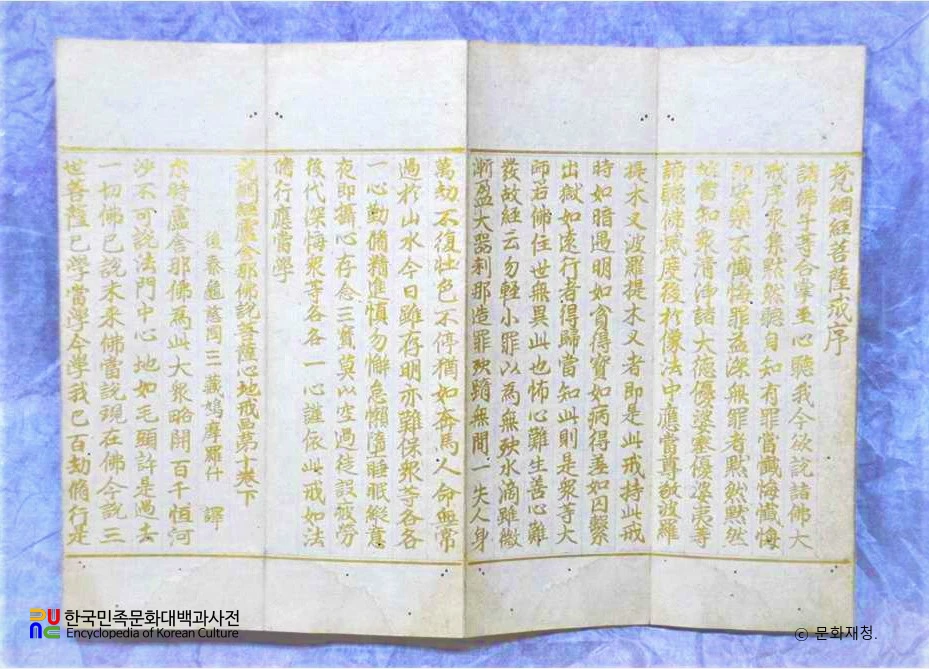 梵網經菩薩戒序
諸佛子等合掌至心聽我今欲說諸佛大
戒序衆集默然聽自知有罪當懺悔懺悔
即安樂不懺悔罪益深無罪者默然默然
故當知衆清淨諸大德優婆塞優婆夷等
諦聽佛滅度後於像法中應當尊敬波羅
提木叉波羅提木叉者即是此戒持此戒
時如暗遇明如貧得寶如病得差如囚繫
出獄如遠行者得歸當知此則是衆等大
師若佛住世無異此也怖心難生善心難
發故經云勿輕小罪以為無殃水滴雖微
漸盈大器剎那造罪殃墮無間一失人身
萬劫不復壯色不停猶如奔馬人命無常
過於山水今日雖存明亦難保衆等各各
一心勤修精進慎勿懈怠懶墮睡眠縱意
夜即攝心存念三寶莫以空過徒設疲勞
後代深悔衆等各各一心謹依此戒如法
修行應當學
梵網經盧舍那佛說菩薩心地戒品第十卷下
後秦龜茲國三藏鳩摩羅什 譯
尒時盧舍那佛為此大衆略開百千恒河
沙不可說法門中心地如毛頭許是過去
一切佛已說未來佛當說現在佛今說三
世菩薩已學當學今學我已百劫修行是
한국민족문화대백과사전
Encyclopedia of Korean Culture
ⓒ 문화재청.